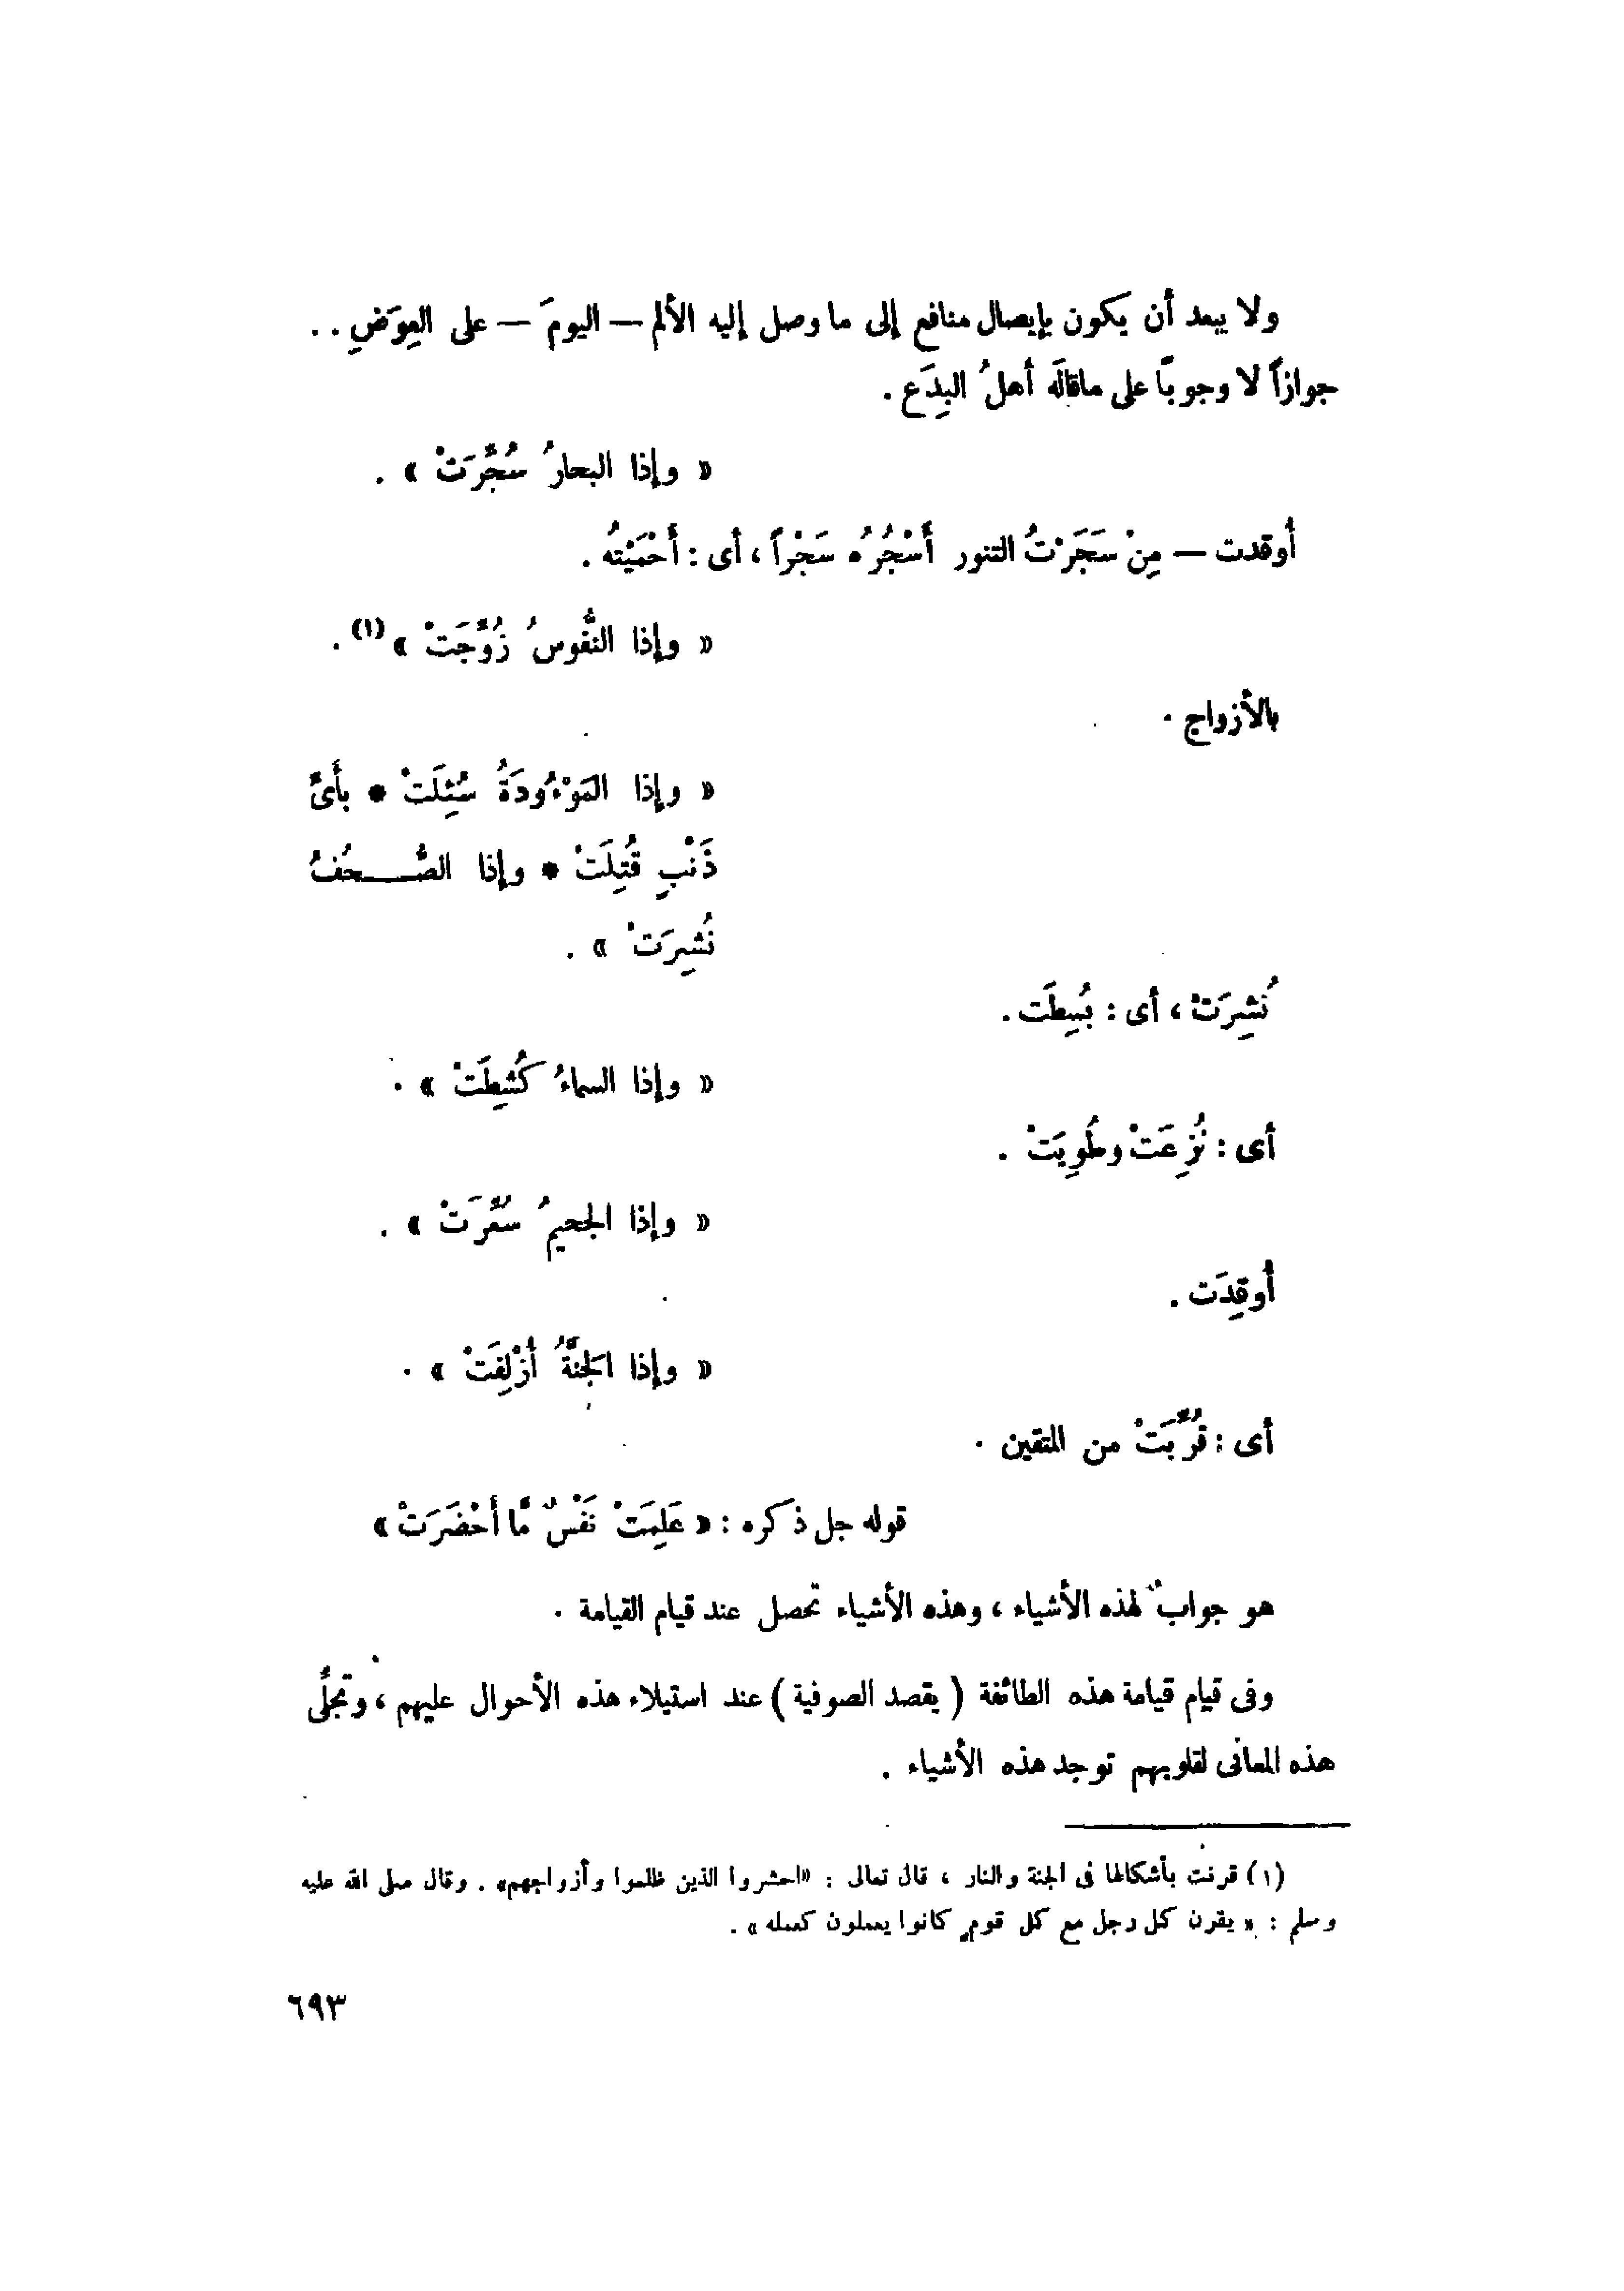 ولا يبعد أن يكون بإيصال منافع إلى ما وصل إليه الألم — اليومَ — على العِوَضِ . .
جوازاً لا وجوبًا على ماقالَه أهلُ البِدَع .
« وإذا البحارُ سُجِّرَتْ » .
أوقدت — مِنْ سَجَرْتُ التنور أَسْجُرُه سَجْراً ، أى : أَحْمَيْتُه .
« وإذا النُّفوسُ زُوِّجَتْ »(١) .
بالأزواج .
« وإذا المَوْءُودَةُ سُئِلَتْ * بأَىِّ
ذَنْبٍ قُتِلَتْ * وإذا الصُّـحُفُ
نُشِرَتْ » .
نُشِرَتْ ، أى : بُسِطَت .
« وإذا السماءُ كُشِطَتْ » .
أى : نُزِعَتْ وطُوِيَتْ .
« وإذا الجحيمُ سُعِّرَتْ » .
أُوقِدَت .
« وإذا الجَنَّةُ أُزْلِفَتْ » .
أى : قُرِّبَتْ من المتقين .
قوله جل ذكره : « عَلِمَتْ نَفْسٌ مَّا أَحْضَرَتْ »
هو جوابٌ لهذه الأشياء ، وهذه الأشياء تحصل عند قيام القيامة .
وفى قيام قيامة هذه الطائفة ( يقصد الصوفية ) عند استيلاء هذه الأحوال عليهم ، وتجلِّى
هذه المعانى لقلوبهم توجد هذه الأشياء .
(١) قرنت بأشكالها فى الجنة والنار ، قال تعالى : «احشروا الذين ظلموا وأزواجهم» . وقال صلى الله عليه
وسلم : « يقرن كل رجل مع كل قومٍ كانوا يعملون كعمله » .
٦٩٣